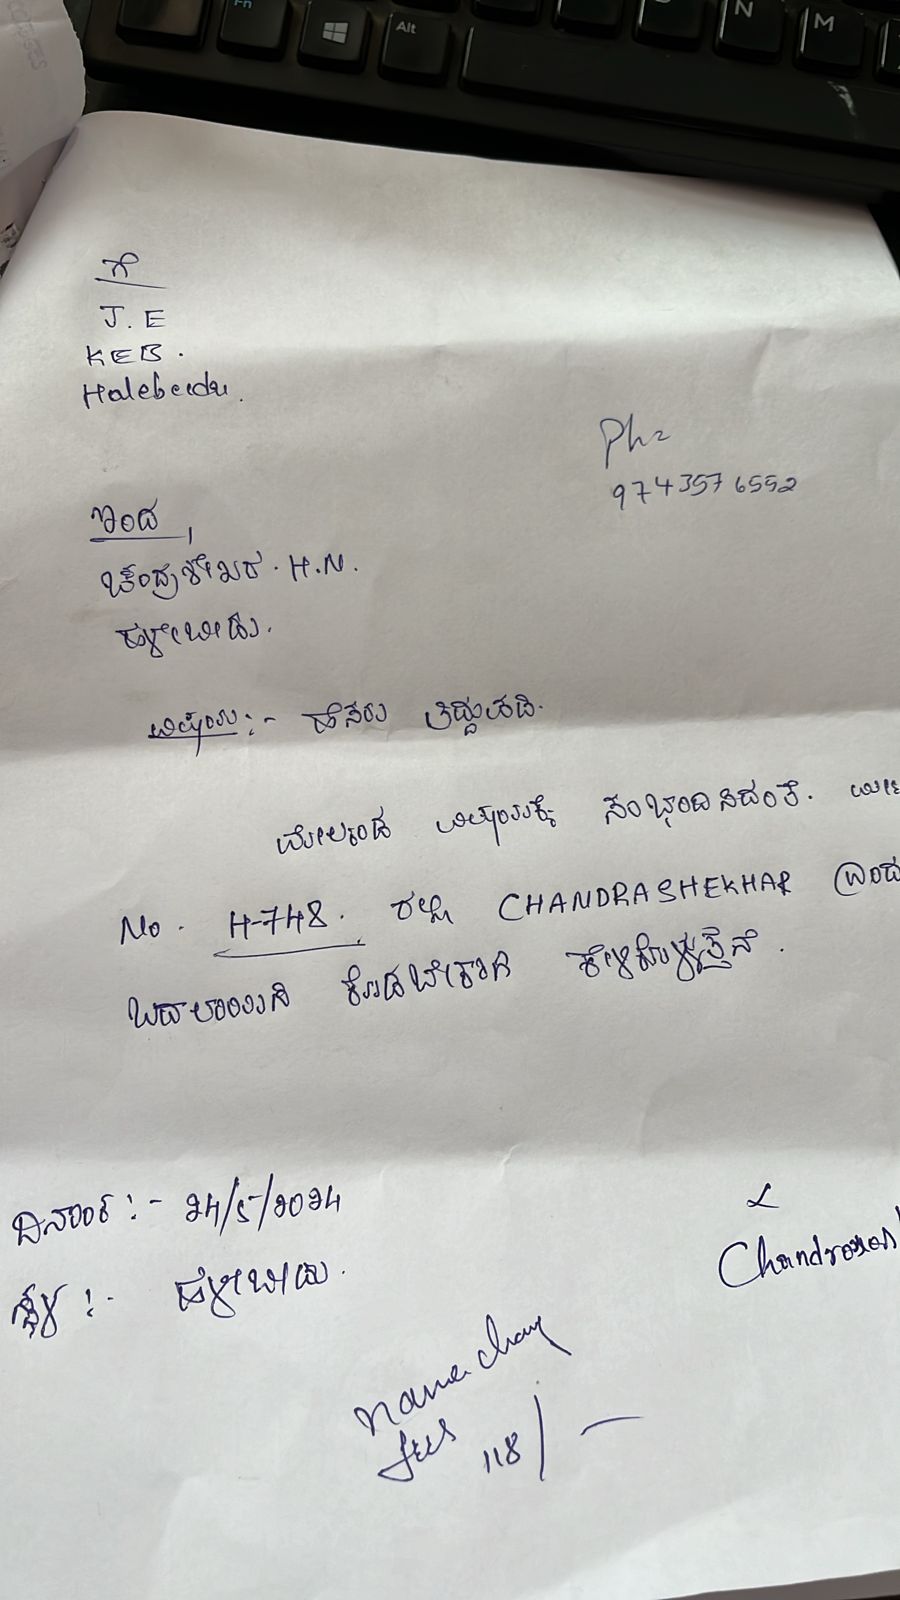 ಗೆ
J.E
KEB.
Halebeedu.
Ph=
9743576552
ಇಂದ,
ಚಂದ್ರಶೇಖರ. H.N.
ಹಳೇಬೀಡು.
ವಿಷಯ:- ಹೆಸರು ತಿದ್ದುಪಡಿ.
ಮೇಲ್ಕಂಡ ವಿಷಯಕ್ಕೆ ಸಂಭಂದಿಸಿದಂತೆ.
No. H-748. ರಲ್ಲಿ CHANDRASHEKHAR
ಬದಲಾಯಿಸಿ ಕೊಡಬೇಕಾಗಿ ಕೇಳಿಕೊಳ್ಳುತ್ತೇನೆ.
ದಿನಾಂಕ:- 24/5/2024
ಸ್ಥಳ:- ಹಳೇಬೀಡು.
name chang
fees 118/-